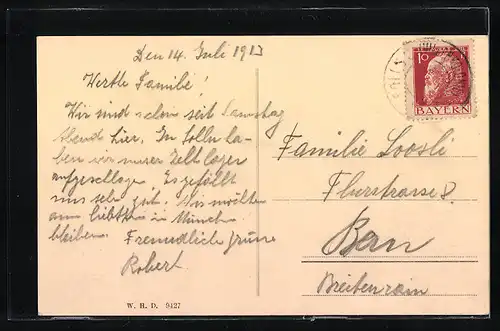 Den 14. Juli 1913
Werthe Familie!
Wir sind schon seit Samstag
Abend hier. In Solln ha-
ben wir unser Zeltlager
aufgeschlagen. Es gefällt
uns sehr gut. Wir möchten
am liebsten in München
bleiben. Freundliche Grüsse
Robert
W. H. D. 9427
10
BAYERN
Familie Loosli
Flurstrasse 8.
Bern
Breitenrain